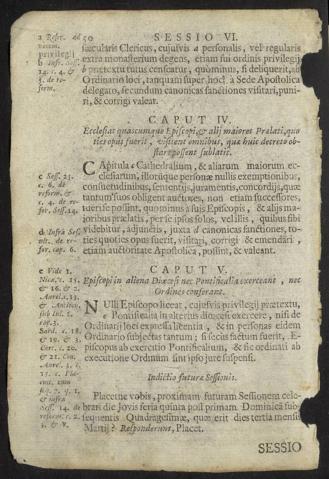 50 SESSIO VI.
sæcularis Clericus, cujusvis personalis, vel regularis
extra monasterium degens, etiam sui ordinis privilegij
b prætextu tutus censeatur, quominus, si deliquerit, ab
Ordinario loci, tanquam super hoc à Sede Apostolica
delegato, secundum canonicas sanctiones visitari, puni-
ri, & corrigi valeat.
CAPUT IV.
Ecclesias quascumque Episcopi, & alij maiores Prælati, quo
ties opus fuerit, visitent omnibus, quæ huic decreto ob-
stare possent sublatis.
CApitula Cathedralium, & aliarum maiorum ec-
clesiarum, illorúque personæ nullis exemptionibus,
consuetudinibus, sententijs, juramentis, concordijs, quæ
tantum suos obligent auctores, non etiam successores,
tueri se possint, quominus à suis Episcopis, & alijs ma-
joribus prælatis, per se ipsos solos, vel illis, quibus sibi
videbitur, adjunctis, juxta d canonicas sanctiones, to-
ties quoties opus fuerit, visitari, corrigi & emendari,
etiam auctoritate Apostolica, possint, & valeant.
CAPUT V.
Episcopi in aliena Diœcesi nec Pontificalia exerceant, nec
Ordines conferant.
NUlli Episcopo liceat, cujusvis privilegij prætextu,
e Pontificalia in alterius diœcesi exercere, nisi de
Ordinarij loci expressa licentia, & in personas eidem
Ordinario subjectas tantum; si secus factum fuerit, E-
piscopus ab exercitio Pontificalium, & sic ordinati ab
executione Ordinum sint ipso jure suspensi.
Indictio futuræ Sessionis.
Placetne vobis, proximam futuram Sessionem cele-
brari die Jovis feria quinta post primam Dominica sub-
sequentis Quadragesimæ, quæ erit dies tertia mensis
Martij? Responderunt, Placet.
SESSIO
privilegij
b Infr. Sess.
14. c. 4. &
5. de re-
form.
c Sess. 25.
c. 6. de
reform. &
c. 4. de re-
for. Sess. 24.
d Infrà Sess
de re-
for. cap. 6.
e Vide 1.
Nicæ. c. 15.
& 16. & 2.
Aurel. c. 13.
& Antioc.
sub Iul. 1.
cap. 3.
Sard. c. 18.
& 19. & 3.
& infra
Sess. 14. de
reform. c. 2.